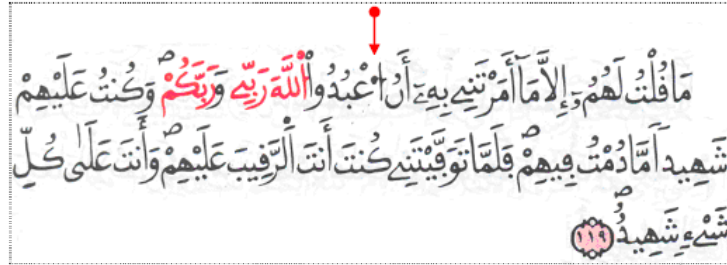 مَا قُلْتُ لَهُمُۥٓ إِلَّا مَآ أَمَرْتَنِے بِهِۦٓ أَنُ اُ۟عْبُدُواْ اُ۬للَّهَ رَبِّے وَرَبَّكُمْۖ وَكُنتُ عَلَيْهِمْ
شَهِيداٗ مَّا دُمْتُ فِيهِمْۖ فَلَمَّا تَوَفَّيْتَنِے كُنتَ أَنتَ اَ۬لرَّقِيبَ عَلَيْهِمْۖ وَأَنتَ عَلَىٰ كُلِّ
شَےْءٖ شَهِيدٌۖ ١١٩